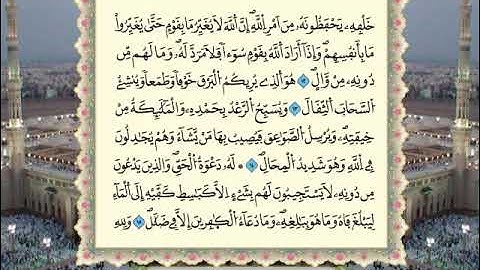 خَلْفِهِۦ يَحْفَظُونَهُۥ مِنَ اَمْرِ اِ۬للَّهِۖ إِنَّ اَ۬للَّهَ لَا يُغَيِّرُ مَا بِقَوْمٍ حَتَّىٰ يُغَيِّرُواْ
مَا بِأَنفُسِهِمْۖ وَإِذَآ أَرَادَ اَ۬للَّهُ بِقَوْمٖ سُوٓءاٗ فَلَا مَرَدَّ لَهُۥۖ وَمَا لَهُم مِّن
دُونِهِۦ مِنْ وَّالٍۖ ١٢ هُوَ اَ۬لذِے يُرِيكُمُ اُ۬لْبَرْقَ خَوْفاٗ وَطَمَعاٗ وَيُنشِۓُ
اُ۬لسَّحَابَ اَ۬لثِّقَالَۖ ١٣ وَيُسَبِّحُ اُ۬لرَّعْدُ بِحَمْدِهِۦ وَالْمَلَٰٓئِكَةُ مِنْ
خِيفَتِهِۦۖ وَيُرْسِلُ اُ۬لصَّوَٰعِقَ فَيُصِيبُ بِهَا مَنْ يَّشَآءُۖ وَهُمْ يُجَٰدِلُونَ
فِے اِ۬للَّهِ وَهُوَ شَدِيدُ اُ۬لْمِحَالِۖ لَهُۥ دَعْوَةُ اُ۬لْحَقِّۖ وَالذِينَ يَدْعُونَ
مِن دُونِهِۦ لَا يَسْتَجِيبُونَ لَهُم بِشَےْءٍ اِلَّا كَبَٰسِطِ كَفَّيْهِ إِلَى اَ۬لْمَآءِ
لِيَبْلُغَ فَاهُ وَمَا هُوَ بِبَٰلِغِهِۦۖ وَمَا دُعَآءُ اُ۬لْكٰ۪فِرِينَ إِلَّا فِے ضَلَٰلٖۖ وَلِلهِ